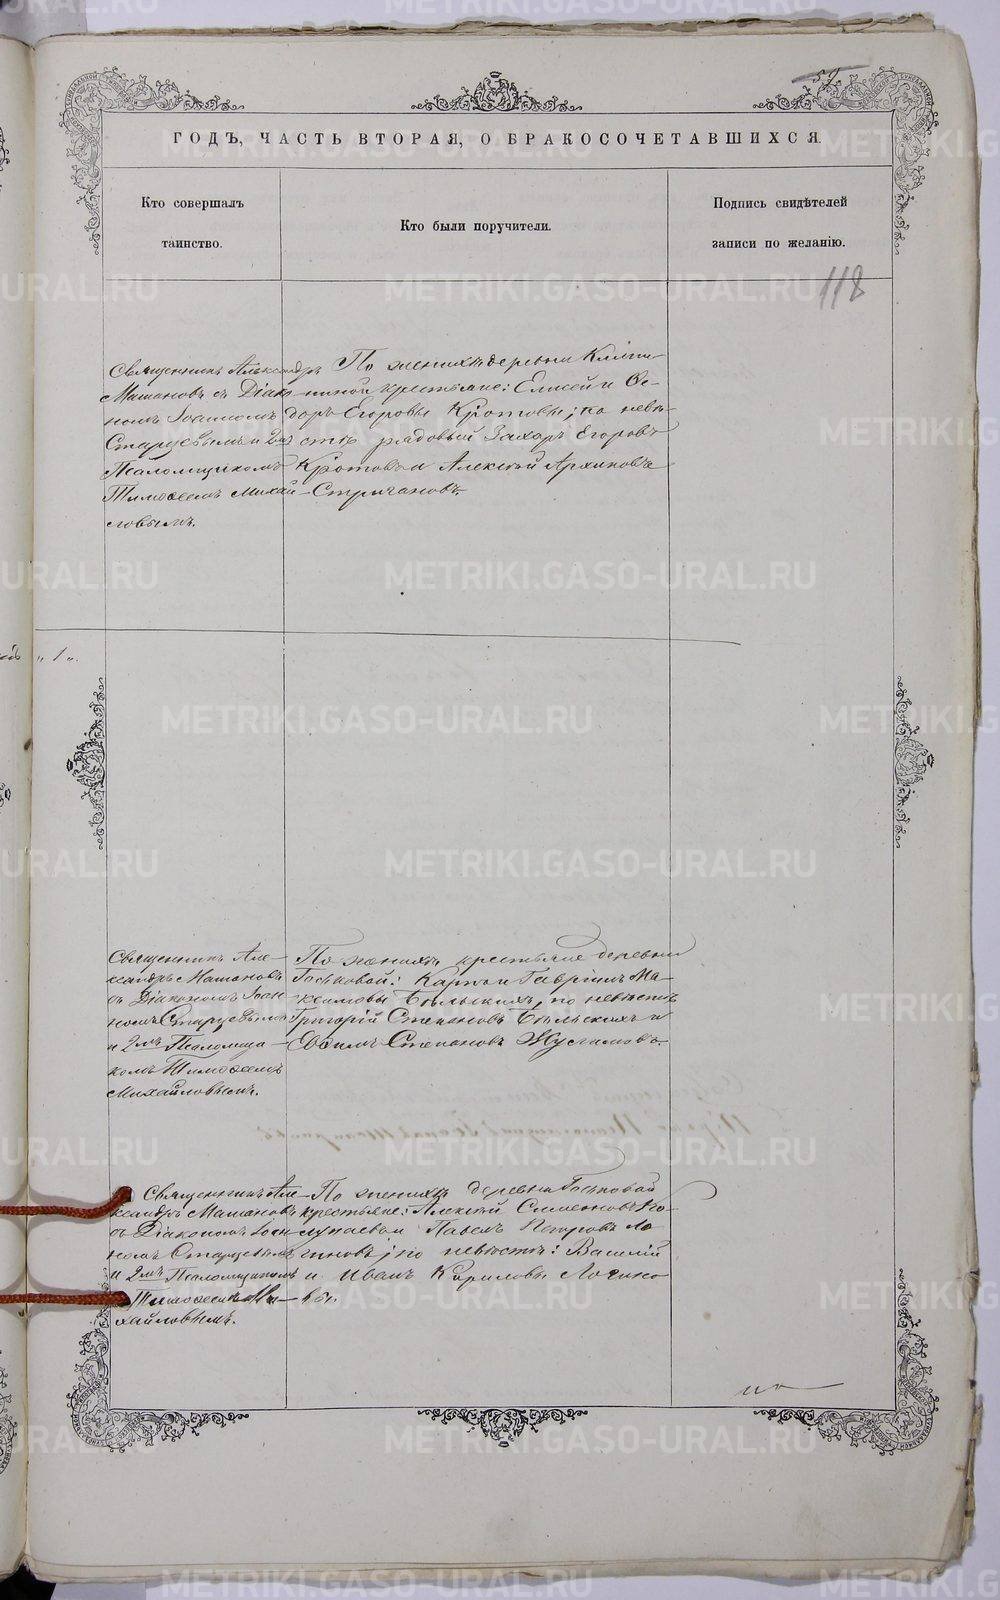 59
ГОДЪ, ЧАСТЬ ВТОРАЯ, О БРАКОСОЧЕТАВШИХСЯ.
Кто совершалъ
таинство.
Кто были поручители.
Подпись свидѣтелей
записи по желанію.
118
Священникъ Александръ
Машановъ съ Діако-
номъ Іоанномъ
Старцевымъ и 2мъ
Псаломщикомъ
Тимофеемъ Михай-
ловымъ.
По женихѣ деревни
крестьяне: Елисей и Ѳе-
доръ Егоровы Кротовы; по невѣ-
стѣ рядовый Захаръ Егоровъ
Кротовъ и Алексѣй Архиповъ
Стричановъ.
"1".
Священникъ Але-
ксандръ Машановъ
съ Діакономъ Іоан-
номъ Старцевымъ
и 2мъ Псаломщи-
комъ Тимофеемъ
Михайловымъ.
По женихѣ крестьяне деревни
Госьковой: Карпъ и Гавріилъ Ма-
ксимовы Бѣльскихъ, по невѣстѣ
Григорій Степановъ Бѣльскихъ и
Степановъ
Священникъ Але-
ксандръ Машановъ
съ Діакономъ Іоан-
номъ Старцевымъ
и 2мъ Псаломщикомъ
Тимофеемъ Ми-
хайловымъ.
По женихѣ деревни Госьковой
крестьяне: Алексѣй Симеоновъ
и Павелъ Петровъ Ло-
гиновъ; по невѣстѣ: Василій
и Иванъ Кириловы Логино-
вы.
METRIKI.GASO-URAL.RU